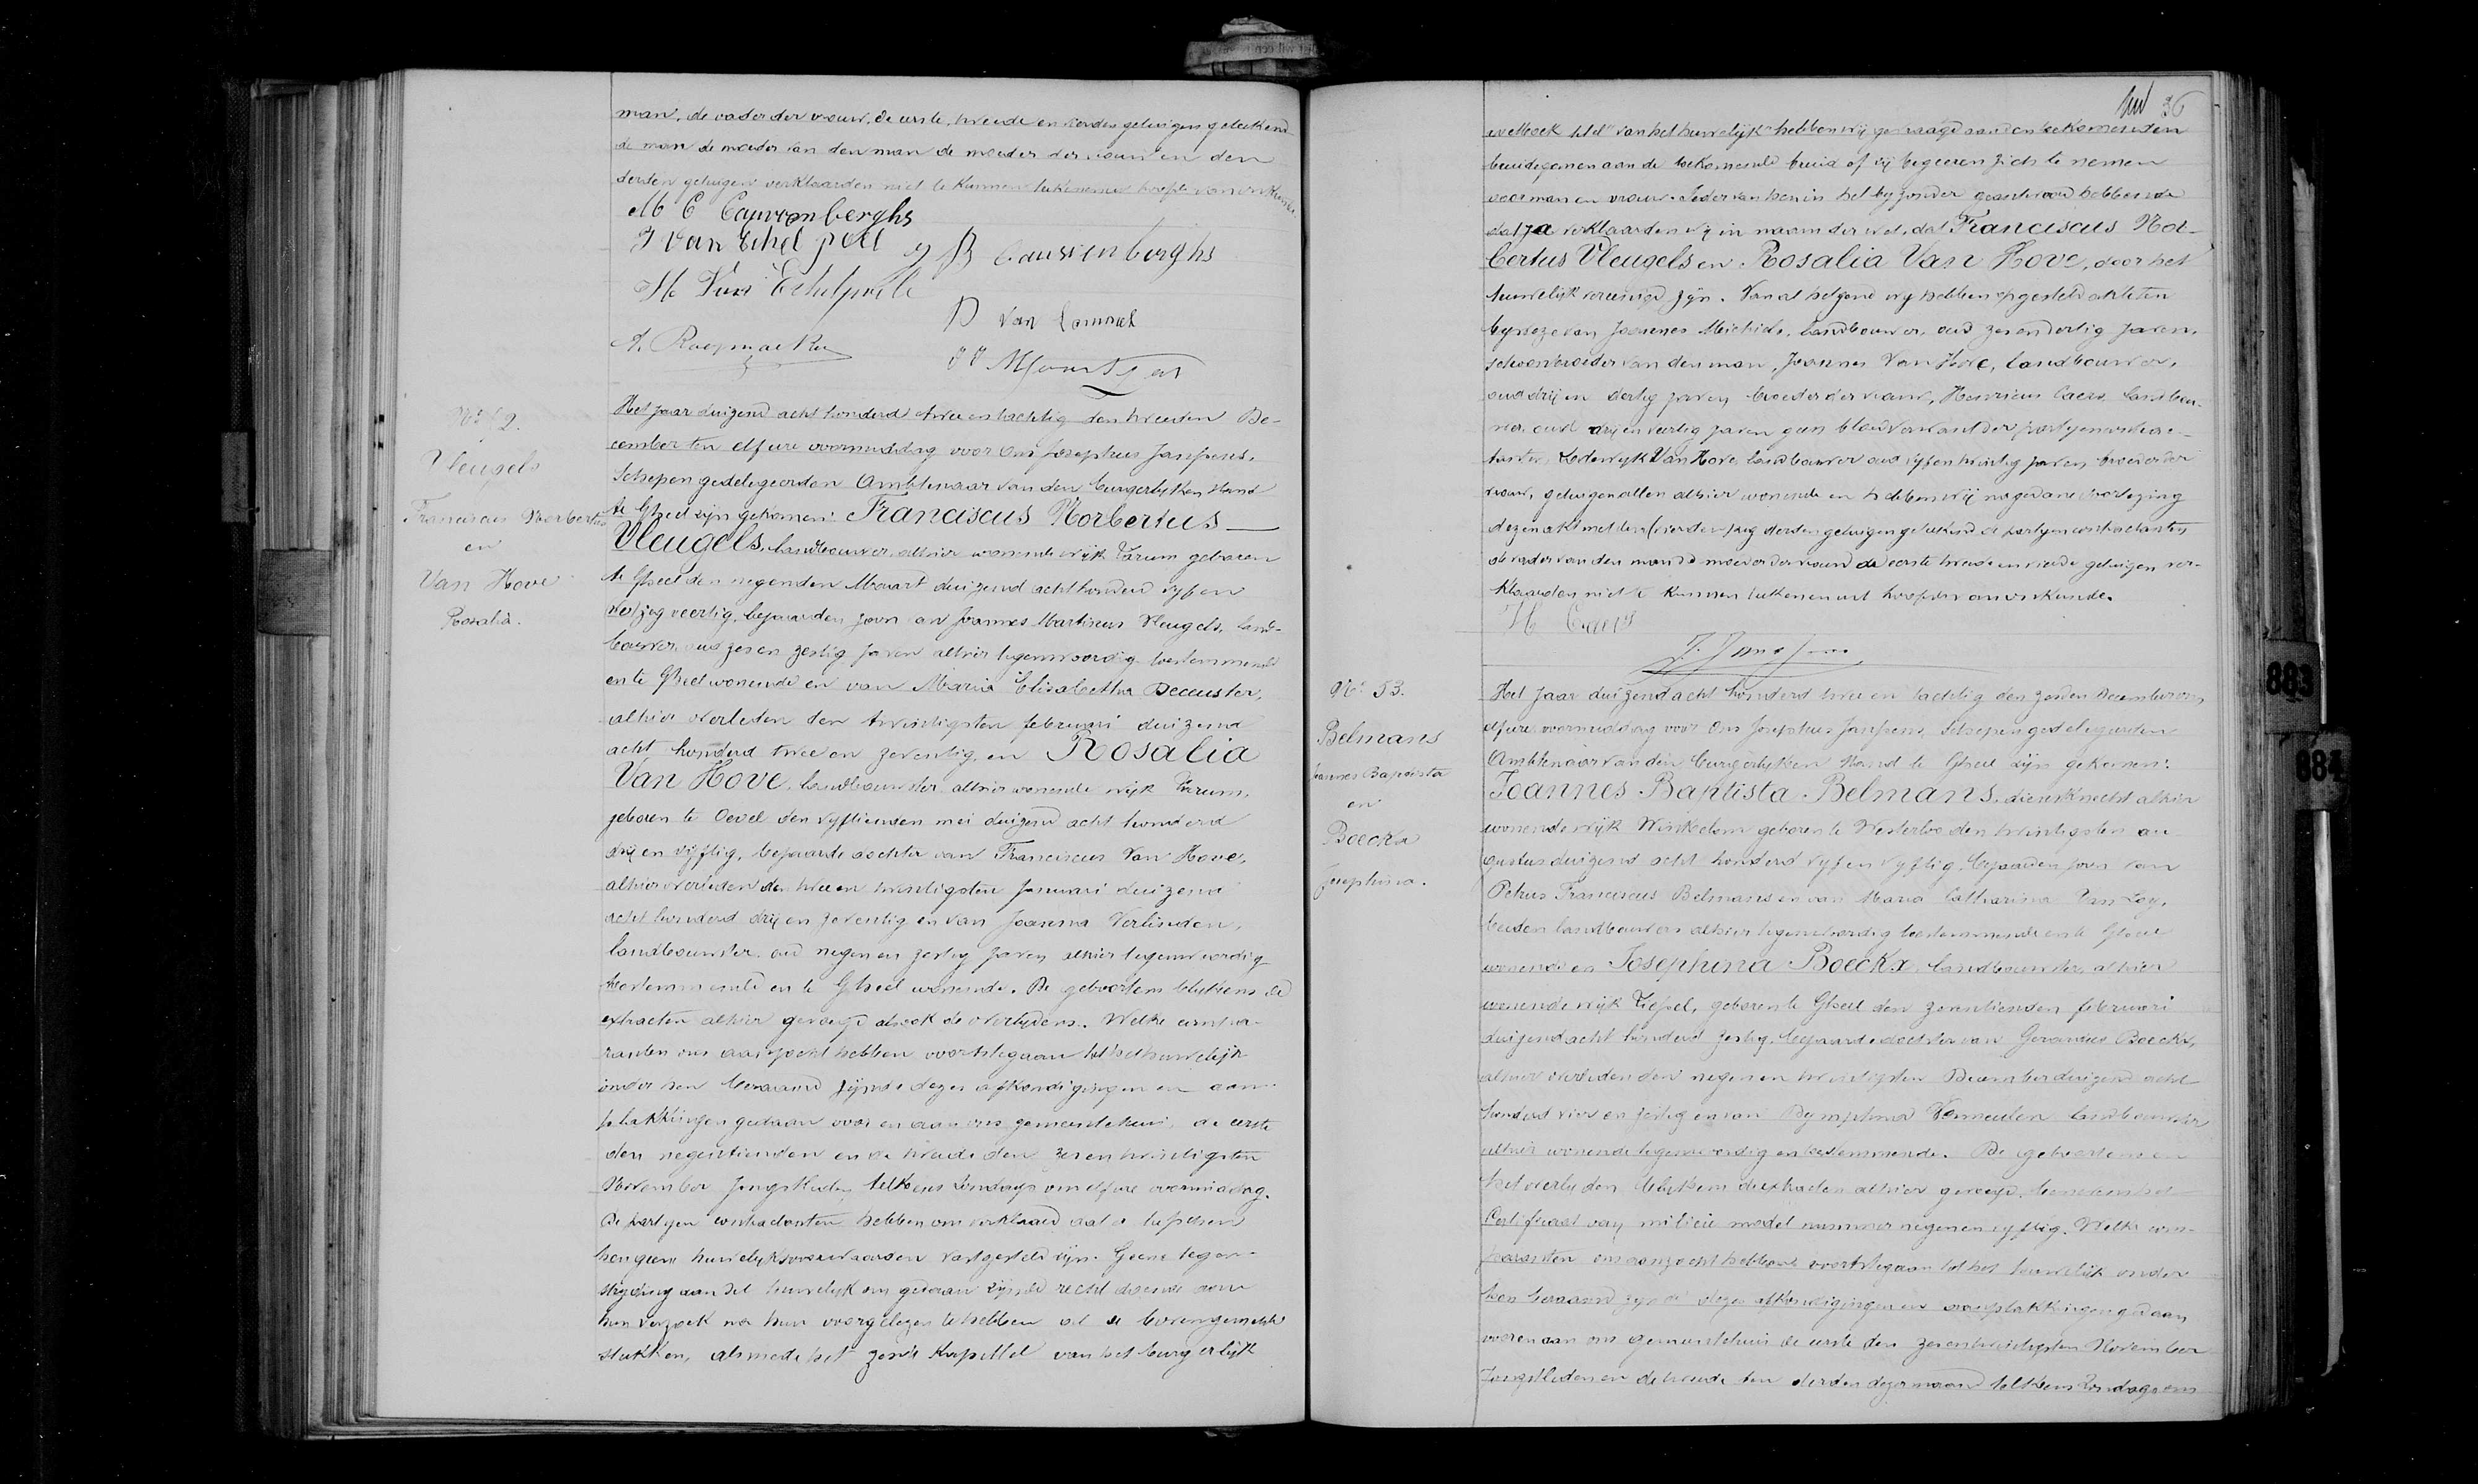 man, de vader der vrouw, de eerste, tweede en vierden getuigen geteekend
de man de moeder van den man de moeder der vrouw en den
derden getuigen verklaarden niet te kunnen teekenen uit hoofde van onkunde.
M C Cauwenberghs
J Van Echelpoel
J B Cauwenberghs
H Van Echelpoel
D Van Lommel
Nr 52.
Vleugels
Franciscus Norbertus
en
Van Hove
Rosalia.
Het jaar duizend acht honderd twee en tachtig den tweeden De-
cember ten elf ure voormiddag voor Ons Josephus Janssens,
Schepen gedelegeerden Ambtenaar van den burgerlyken stand
te Gheel zyn gekomen: Franciscus Norbertus
Vleugels, landbouwer, alhier wonende wijk Larum geboren
te Gheel den negenden Maart duizend acht honderd vyf en
veertig, bejaarden zoon van Joannes Martinus Vleugels, land-
bouwer, oud zes en zestig jaren alhier tegenwoordig toestemmende
en te Gheel wonende en van Maria Elisabetha Deceuster,
alhier overleden den twintigsten februari duizend
acht honderd twee en zeventig, en Rosalia
Van Hove, landbouwster alhier wonende wijk Larum,
geboren te Oevel den vyftienden mei duizend acht honderd
drij en vijftig, bejaarde dochter van Franciscus Van Hove,
alhier overleden den twee en twintigsten Januari duizend
acht honderd drij en zeventig en van Joanna Verlinden,
landbouwster, oud negen en zestig jaren alhier tegenwoordig
toestemmende en te Gheel wonende. De geboortens blykens de
extracten alhier gevoegd alsook de overlydens. Welke compa-
ranten ons aanzocht hebben voortstegaan tot het huwelijk
onder hen beraamd zijnde dezes afkondigingen en aan-
plakkingen gedaan voor en aan ons gemeentehuis, de eerste
den negentienden en de tweede den zes en twintigsten
November jongstleden, telkens Zondags om elf ure voormiddag.
De partyen contractanten hebben ons verklaard dat er tusschen
hen geene huwelyksvoorwaarden vastgesteld zijn. Geene tegen-
strydigng aan dit huwelyk ons gedaan zijnde recht doende aan
hun verzoek na hun voorgelezen te hebben al de bovengemelde
stukken, alsmede het zesde kapittel van het burgerlijk
36
wetboek titel "van het huwelijk" hebben wij gevraagd aan den toekomenden
bruidegom en aan de toekomende bruid of zij begeeren zich te nemen
voor man en vrouw. Ieder van hen in het byzonder geantwoord hebbende
dat ja verklaarden wij in naam der wet, dat Franciscus Nor-
bertus Vleugels en Rosalia Van Hove, door het
huwelijk vereenigd zijn. Van al hetgene wij hebben opgesteld akte ten
bywezen van Joannes Michiels, landbouwer, oud zes en dertig jaren,
schoonbroeder van den man, Joannes Van Hove, landbouwer,
oud drij en dertig jaren broeder der vrouw, Henricus Caers, landbou-
wer, oud drij en veertig jaren geen bloedverwant der partyen contrac-
tanten, Lodewyk Van Hove, landbouwer oud vyf en twintig jaren, broeder der
vrouw, getuigen allen alhier wonende en hebben wij na gedane voorlezing
dezen akt met den (vierden) zeg derden getuigen geteekend de partyen contractanten,
de vader van den man de moeder der vrouw de eerste tweede en vierde getuigen ver-
klaarden niet te kunnen teekenen uit hoofde van onkunde.
H Caers
J. Janssens
Nr 53.
Belmans
Joannes Baptista
en
Boeckx
Josephina.
Het jaar duizend acht honderd twee en tachtig den zesden December om
elf ure voormiddag voor Ons Josephus Janssens, Schepen gedelegeerden
Ambtenaar van den burgerlyken stand te Gheel zijn gekomen:
Joannes Baptista Belmans, dienstknecht alhier
wonende wijk Winkelom geboren te Westerloo den twintigsten au-
gustus duizend acht honderd vyf en vyftig, bejaarden zoon van
Petrus Franciscus Belmans en van Maria Catharina Van Loy,
beiden landbouwers alhier tegenwoordig toestemmende en te Gheel
wonende en Josephina Boeckx, landbouwster, alhier
wonende wijk Liessel, geboren te Gheel den zeventienden februari
duizend acht honderd zestig, bejaarde dochter van Gerardus Boeckx,
alhier overleden den negen en twintigsten December duizend acht
honderd vier en zestig en van Dymphna Vermeulen landbouwster
alhier wonende tegenwoordig en toestemmende. De geboortens en
het overlyden blykens de extracten alhier gevoegd, benevens het
Certificaat van militie model nummer negen en vyftig. Welke com-
paranten ons aanzocht hebben voortstegaan tot het huwelijk onder
hen beraamd zijnde dezes afkondigingen en aanplakkingen gedaan
voor en aan ons gemeentehuis de eerste den zes en twintigsten November
jongstleden en de tweede den derden dezer maand telkens Zondags om
883
884